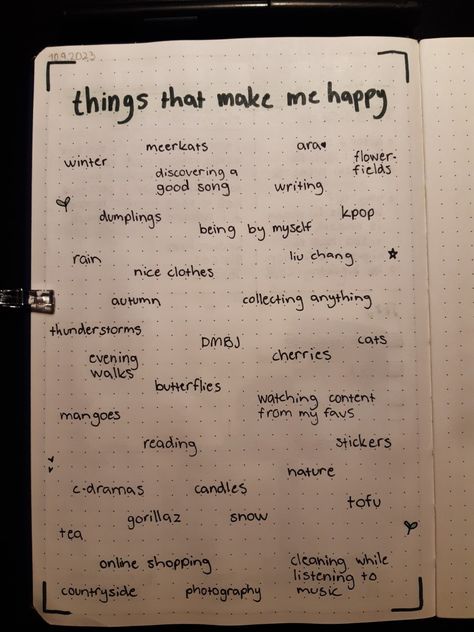 10.9.2023
things that make me happy
meerkats
ara
winter
flower-
fields
discovering a
good song
writing
dumplings
being by myself
kpop
rain
nice clothes
liu chang
autumn
collecting anything
thunderstorms
DMBJ
cats
evening
walks
cherries
butterflies
watching content
from my favs
mangoes
reading
stickers
nature
c-dramas
candles
tofu
gorillaz
snow
tea
online shopping
cleaning while
listening to
music
countryside
photography